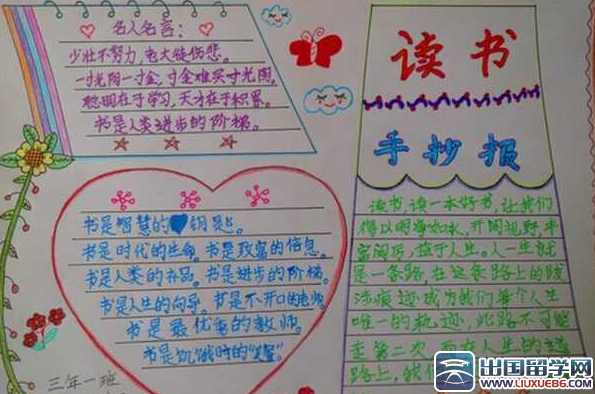 名人名言:
少壮不努力,老大徒伤悲。
一寸光阴一寸金,寸金难买寸光阴。
聪明在于学习,天才在于积累。
书是人类进步的阶梯。
读书
手抄报
书是智慧的钥匙。
书是时代的生命。书是致富的信息。
书是人类的补品。书是进步的阶梯。
书是人生的向导。书是不开口的老师
书是最优秀的教师。
书是饥饿时的"美餐"。
读书,读一本好书,让我们
得以明净如水,开阔视野,丰
富阅历,益于人生。人一生就
是一条路,在这条路上的跋
涉痕迹成为我们每个人生
唯一的轨迹,此路不可能
走第二次,而在人生的道
路上,我们
三年一班
出国留学网
WWW.LIUXUE86.COM